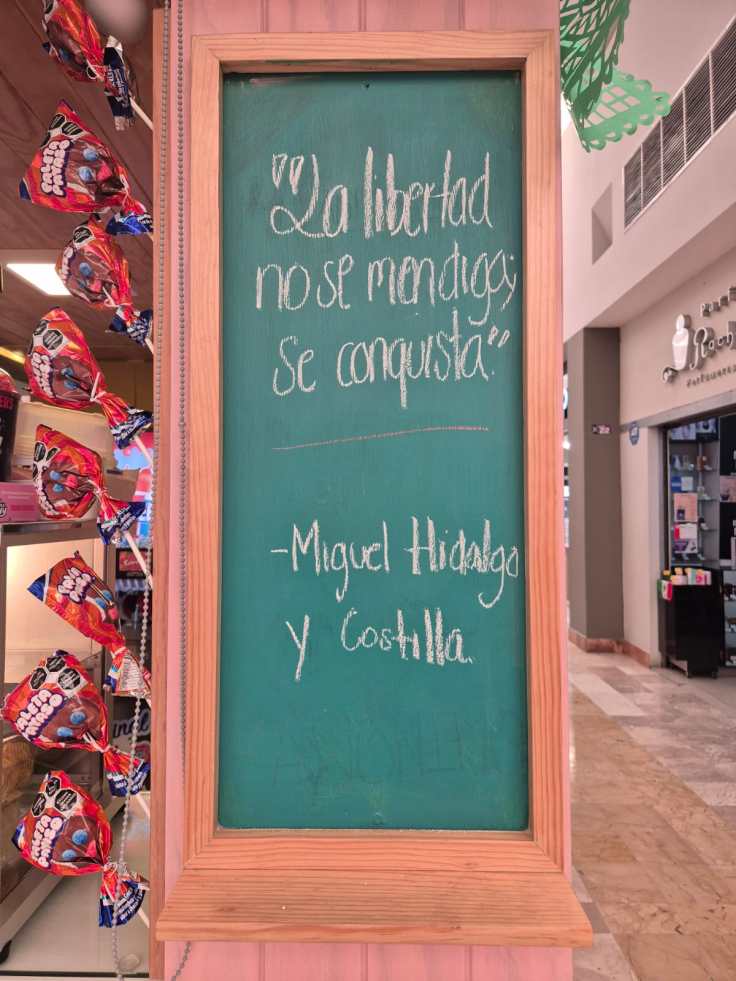 "La libertad
no se mendiga;
se conquista."
-Miguel Hidalgo
y Costilla.